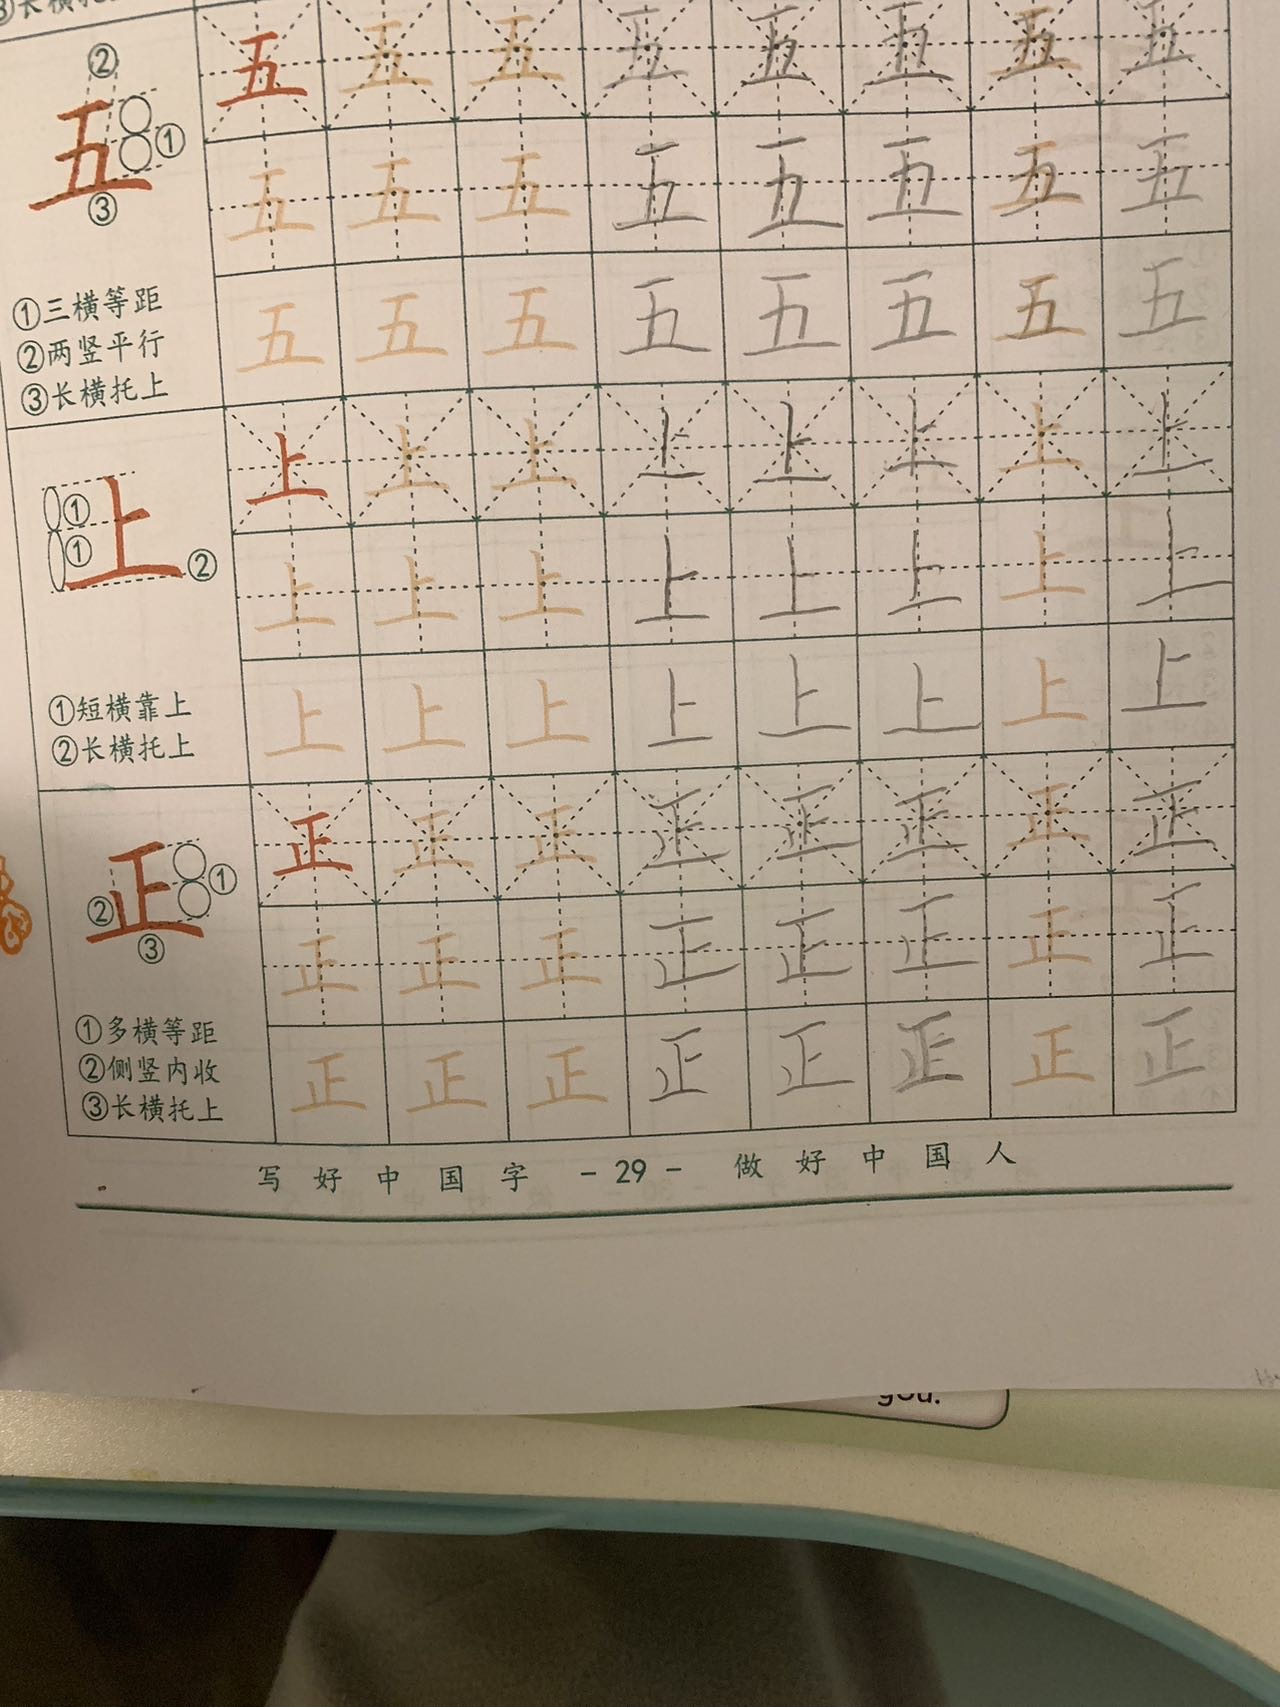 ③长横托上
② 五 ① ③ 五 五 五 五 五 五 五 五
五 五 五 五 五 五 五 五
①三横等距
②两竖平行
③长横托上
五 五 五 五 五 五 五 五
① ① 上 ② 上 上 上 上 上 上 上 上
上 上 上 上 上 上 上 上
①短横靠上
②长横托上
上 上 上 上 上 上 上 上
正 ① ② ③ 正 正 正 正 正 正 正 正
正 正 正 正 正 正 正 正
①多横等距
②侧竖内收
③长横托上
正 正 正 正 正 正 正 正
写好中国字 - 29 - 做好中国人
you.